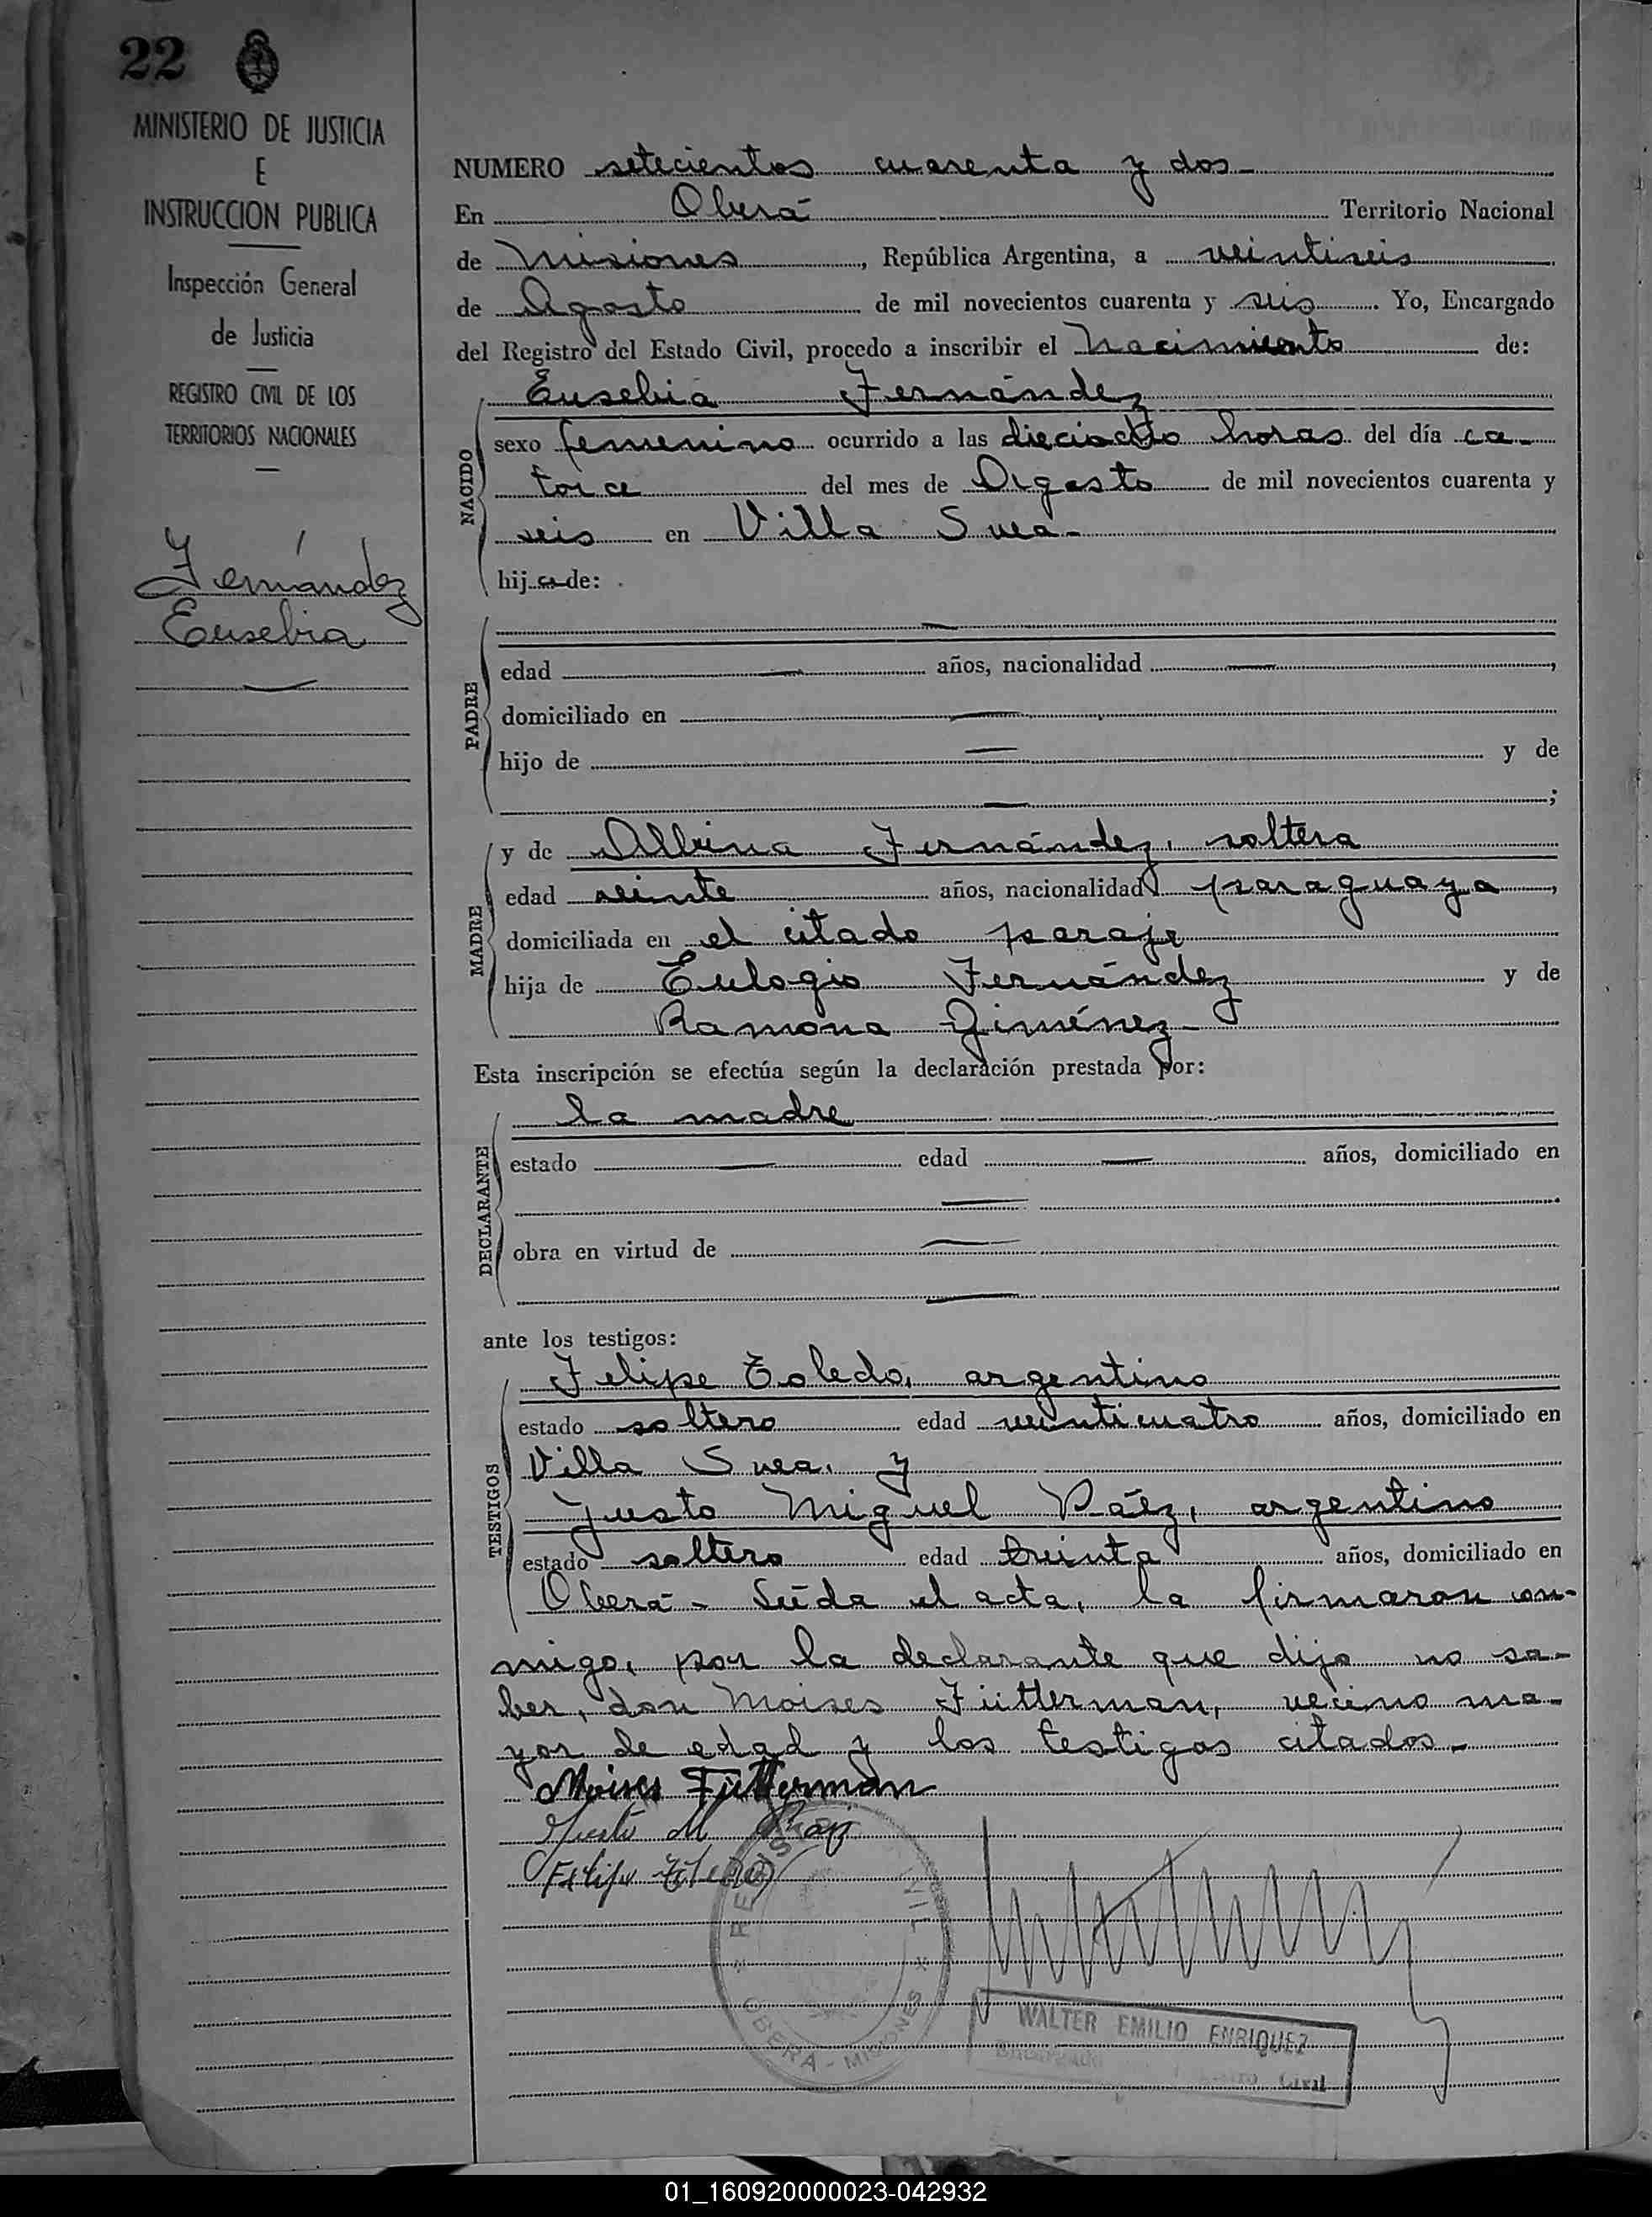 22
MINISTERIO DE JUSTICIA
E
INSTRUCCION PUBLICA
Inspección General
de Justicia
REGISTRO CIVIL DE LOS
TERRITORIOS NACIONALES
Fernández
Eusebia
NUMERO setecientos cuarenta y dos-
En Oberá Territorio Nacional
de Misiones, República Argentina, a veintiseis
de Agosto de mil novecientos cuarenta y seis. Yo, Encargado
del Registro del Estado Civil, procedo a inscribir el Nacimiento de:
NACIDO
Eusebia Fernández
sexo femenino ocurrido a las dieciocho horas del día ca-
torce del mes de Agosto de mil novecientos cuarenta y
seis en Villa Svea-
hija de:
PADRE
—
edad — años, nacionalidad —,
domiciliado en —
hijo de — y de
—;
MADRE
y de Albina Fernández, soltera
edad veinte años, nacionalidad paraguaya,
domiciliada en el citado paraje
hija de Eulogio Fernández y de
Ramona Giménez-
Esta inscripción se efectúa según la declaración prestada por:
DECLARANTE
la madre
estado — edad — años, domiciliado en
—.
obra en virtud de —
—
ante los testigos:
TESTIGOS
Felipe Toledo, argentino
estado soltero edad veinticuatro años, domiciliado en
Villa Svea, y
Justo Miguel Páez, argentino
estado soltero edad treinta años, domiciliado en
Oberá- Leída el acta, la firmaron con-
migo, por la declarante que dijo no sa-
ber, don Moises Fütterman, vecino ma-
yor de edad y los testigos citados-
Moises Fütterman
Justo M Páez
Felipe Toledo
OBERA - MISIONES
WALTER EMILIO ENRIQUEZ
Encargado Civil
01_160920000023-042932